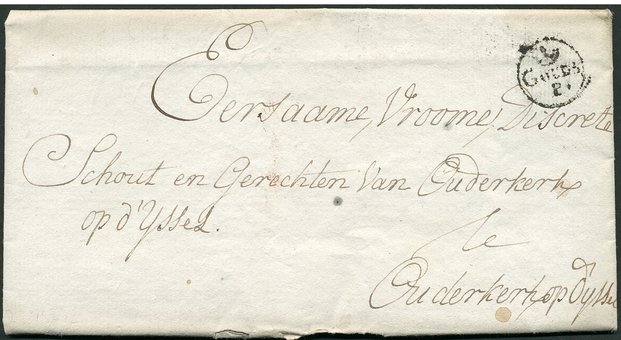 GOUDS
Eersaame, Vroome, Discrete
Schout en Gerechten Van Ouderkerk
op d'Yssel.
Te
Ouderkerk op d'Yssel